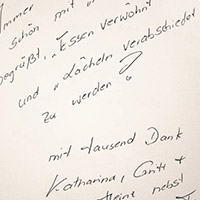 Immer
schön mit "
begrüßt, "Essen verwöhnt
und "Lächeln verabschiedet
zu werden"
mit tausend Dank
Katharina, Gritt +
nebst